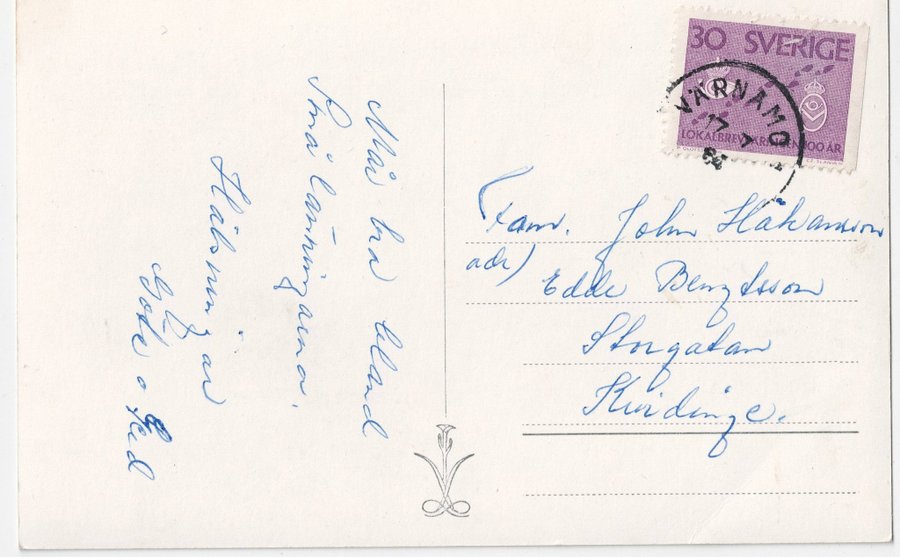 30 SVERIGE
LOKALBREV
100 ÅR
VÄRNAMO
17 7
Mår bra bland
Smålänningarna.
Hälsningar
Göte o
(Fam. John Håkansson
adr)
Edde Bengtsson
Storgatan
Kvidinge.